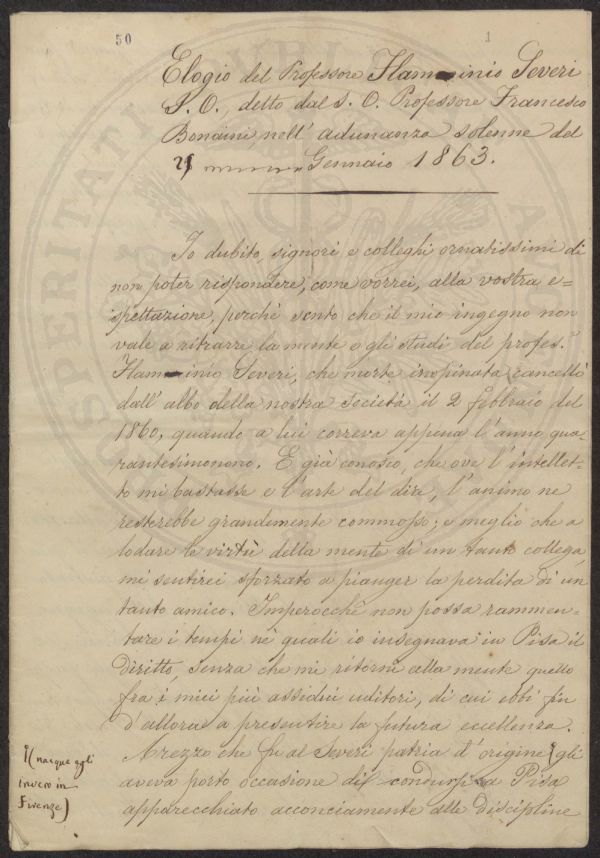 50
1
Elogio del Professore Flaminio Severi
S. O., detto dal S. O. Professore Francesco
Bonaini nell' adunanza solenne del
Gennaio 1863.
Io dubito, signori e colleghi ornatissimi di
non poter rispondere, come vorrei, alla vostra e=
spettazione, perchè sento che il mio ingegno non
vale a ritrarre la mente e gli studi del profes.
Flaminio Severi, che morte inopinata cancellò
dall' albo della nostra Società il 2 febbraio del
1860, quando a lui correva appena l'anno qua-
rantesimonono. E già conosco, che ove l'intellet-
to mi bastasse e l'arte del dire, l'animo ne
resterebbe grandemente commosso; e meglio che a
lodare le virtù della mente di un tanto collega,
mi sentirei sforzato a pianger la perdita di un
tanto amico. Imperocchè non possa rammen-
tare i tempi nè quali io insegnava in Pisa il
diritto, senza che mi ritorni alla mente quello
fra i miei più assidui uditori, di cui ebbi fin
d'allora a presentire la futura eccellenza.
Arezzo che fu al Severi patria d'origine gli
aveva porto occasione di a Pisa
apparecchiato acconciamente alle discipline
(nacque egli
invero in
Firenze)